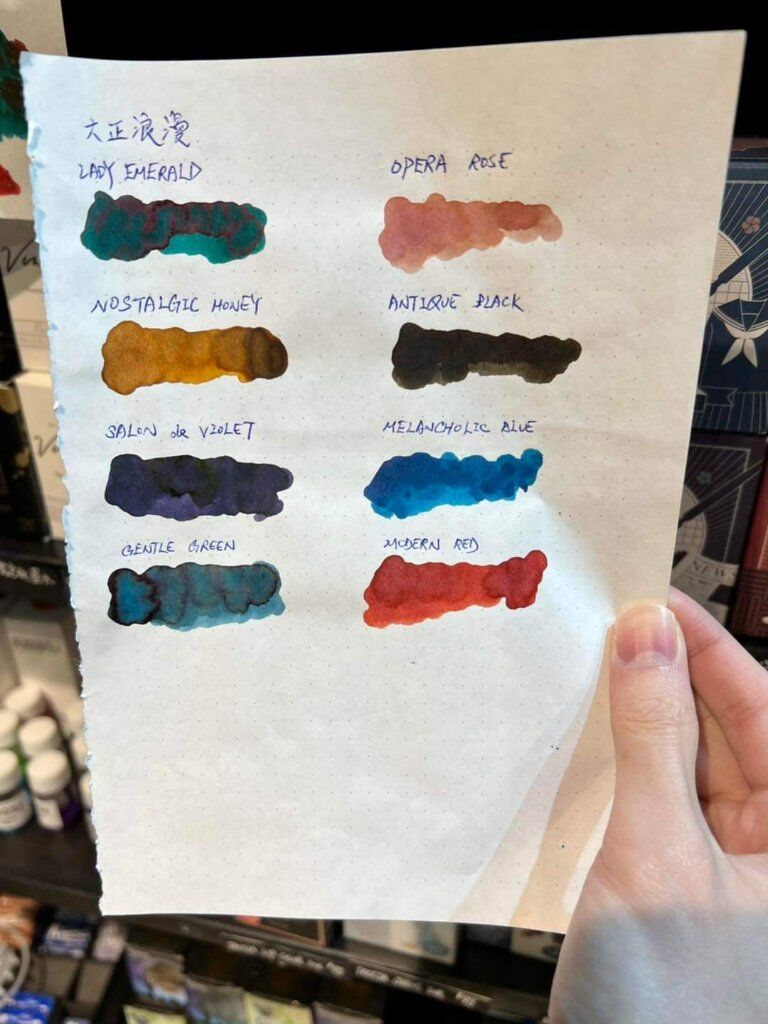 大正浪漫
LADY EMERALD
OPERA ROSE
NOSTALGIC HONEY
ANTIQUE BLACK
SALON de VIOLET
MELANCHOLIC BLUE
GENTLE GREEN
MODERN RED
NEWS